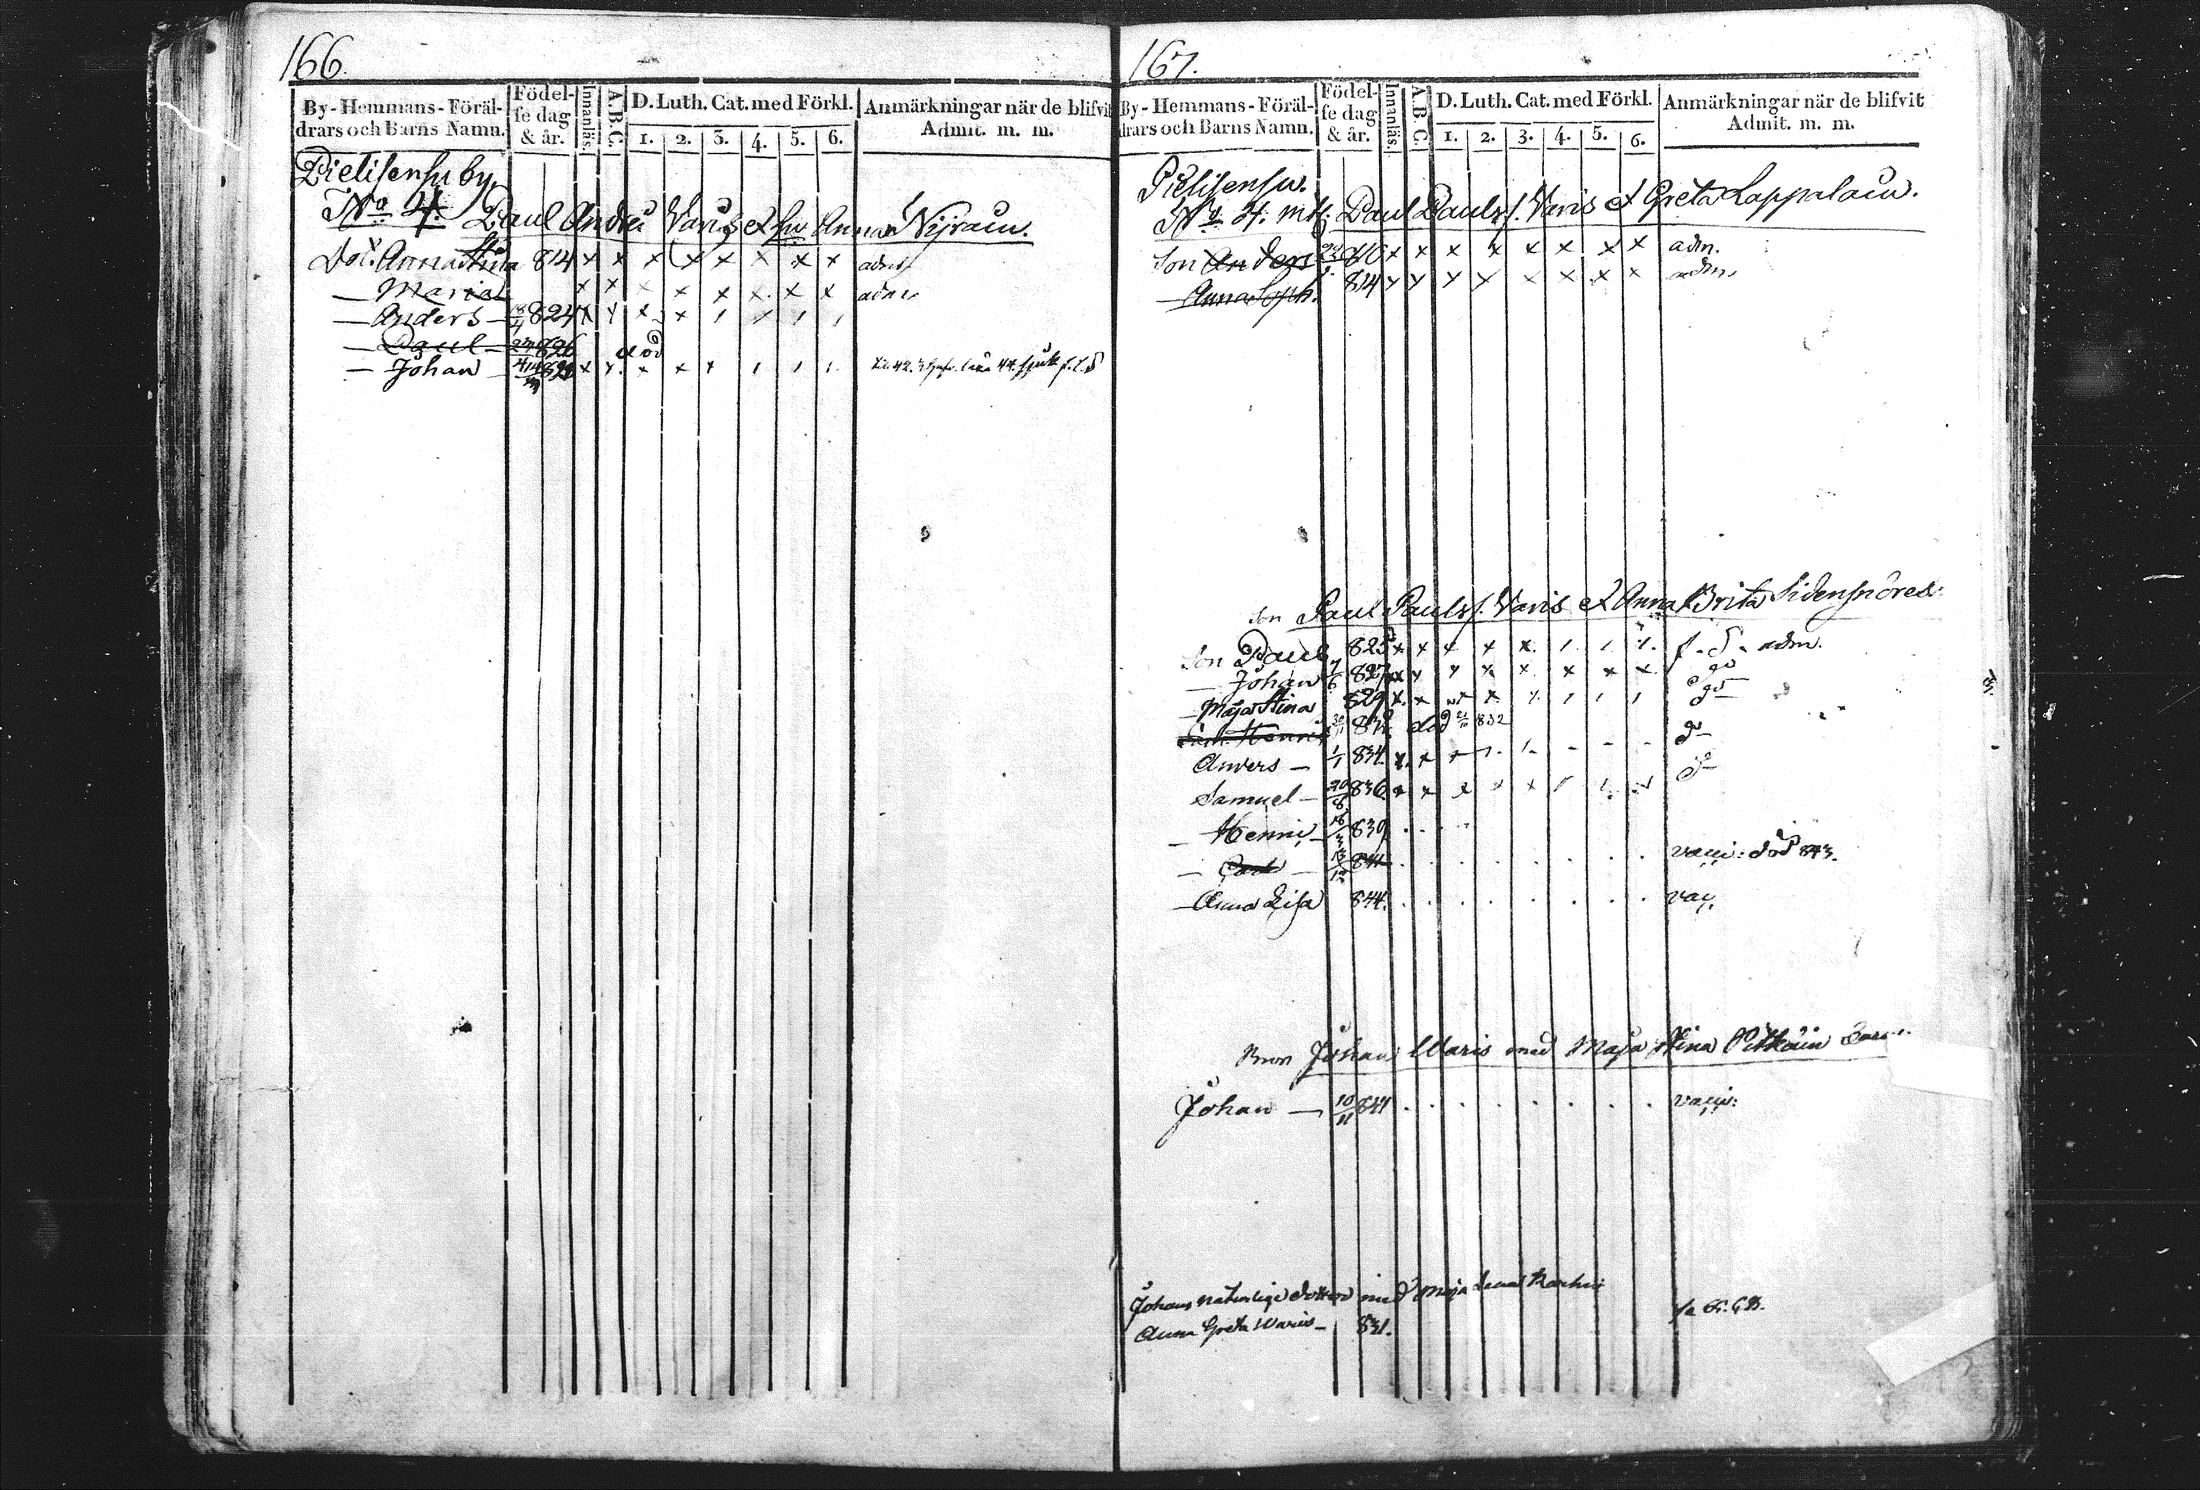 166.
By-Hemmans-Föräl-
drars och Barns Namn.
Födel-
se dag
& år.
Innanläs.
A.B.C.
D. Luth. Cat. med Förkl.
1. 2. 3. 4. 5. 6.
Anmärkningar när de blifvit
Admit. m. m.
Pielisensu by.
No 4. Paul Anders Varis et hu Anna Nijrain.
Dot. Anna Stina 814 x x x x x x x x adm.
— Maria x x x x x x x x adm.
— Anders — 824 x x x x 1 1 1 1
— Paul — 826 död
— Johan x x x x x 1 1 1
167.
By-Hemmans-Föräl-
drars och Barns Namn.
Födel-
se dag
& år.
Innanläs.
A.B.C.
D. Luth. Cat. med Förkl.
1. 2. 3. 4. 5. 6.
Anmärkningar när de blifvit
Admit. m. m.
Pielisensu.
No 4. mtl: Paul Paulss. Varis et Greta Lappalain.
Son Anders 816 x x x x x x x x adm.
— Anna Soph. 814 x x x x x x x x adm.
Son Paul Paulss. Varis et Anna Brita Sidensnöre
Son Paul 825 x x x x x 1 1 1. adm.
— Johan 7/6 827 x x x x x x x x
— Maja Stina 829 x x x x x 1 1 1
Henric 832 död 832
Anders — 1/1 834. x x
Samuel — 20/8 836 x x x x x 1 1
— Henric — 16/3 839 . . . .
— Carl — 13/12 841 . . . . . . . . vacci: död 843.
— Anna Lisa 844. . . . . . . . . vac.
Bror Johan Waris med Maja Stina Pitkäin
Johan — 10/11 844 . . . . . . . . vacci:
Johans naturliga dotter med Maja Lena Karhu
Anna Greta Waris — 831.